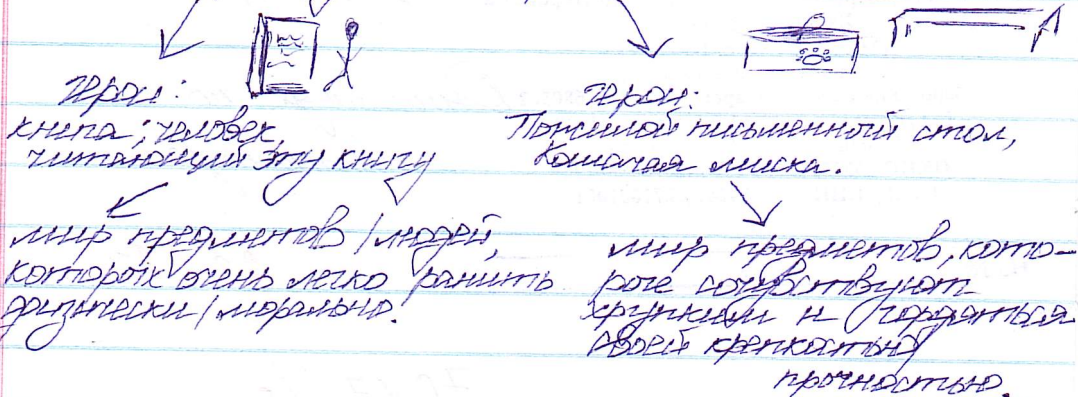 герои:
книга; человек,
читающий эту книгу
мир предметов / людей,
которых очень легко ранить
физически / морально.
герои:
Пожилой письменный стол,
Кошачая миска.
мир предметов, кото-
рые сочувствуют
хрупким и гордяться
своей крепкостью/
прочностью.